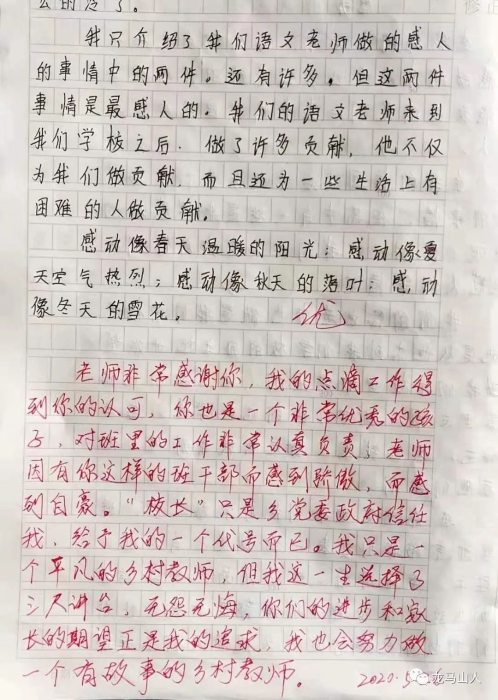 么的冷了。
我只介绍了我们语文老师做的感人
的事情中的两件。还有许多。但这两件
事情是最感人的。我们的语文老师来到
我们学校之后，做了许多贡献，他不仅
为我们做贡献，而且还为一些生活上有
困难的人做贡献。
感动像春天温暖的阳光；感动像夏
天空气热烈；感动像秋天的落叶；感动
像冬天的雪花。
优
老师非常感谢你，我的点滴工作得
到你的认可，你也是一个非常优秀的孩
子，对班里的工作非常认真负责，老师
因有你这样的班干部而感到骄傲，而感
到自豪。“校长”只是乡党委政府信任
我，给予我的一个代号而已。我只是一
个平凡的乡村教师，但我这一生选择了
三尺讲台，无怨无悔，你们的进步和家
长的期望正是我的追求，我也会努力做
一个有故事的乡村教师。
2020.5
龙马山人